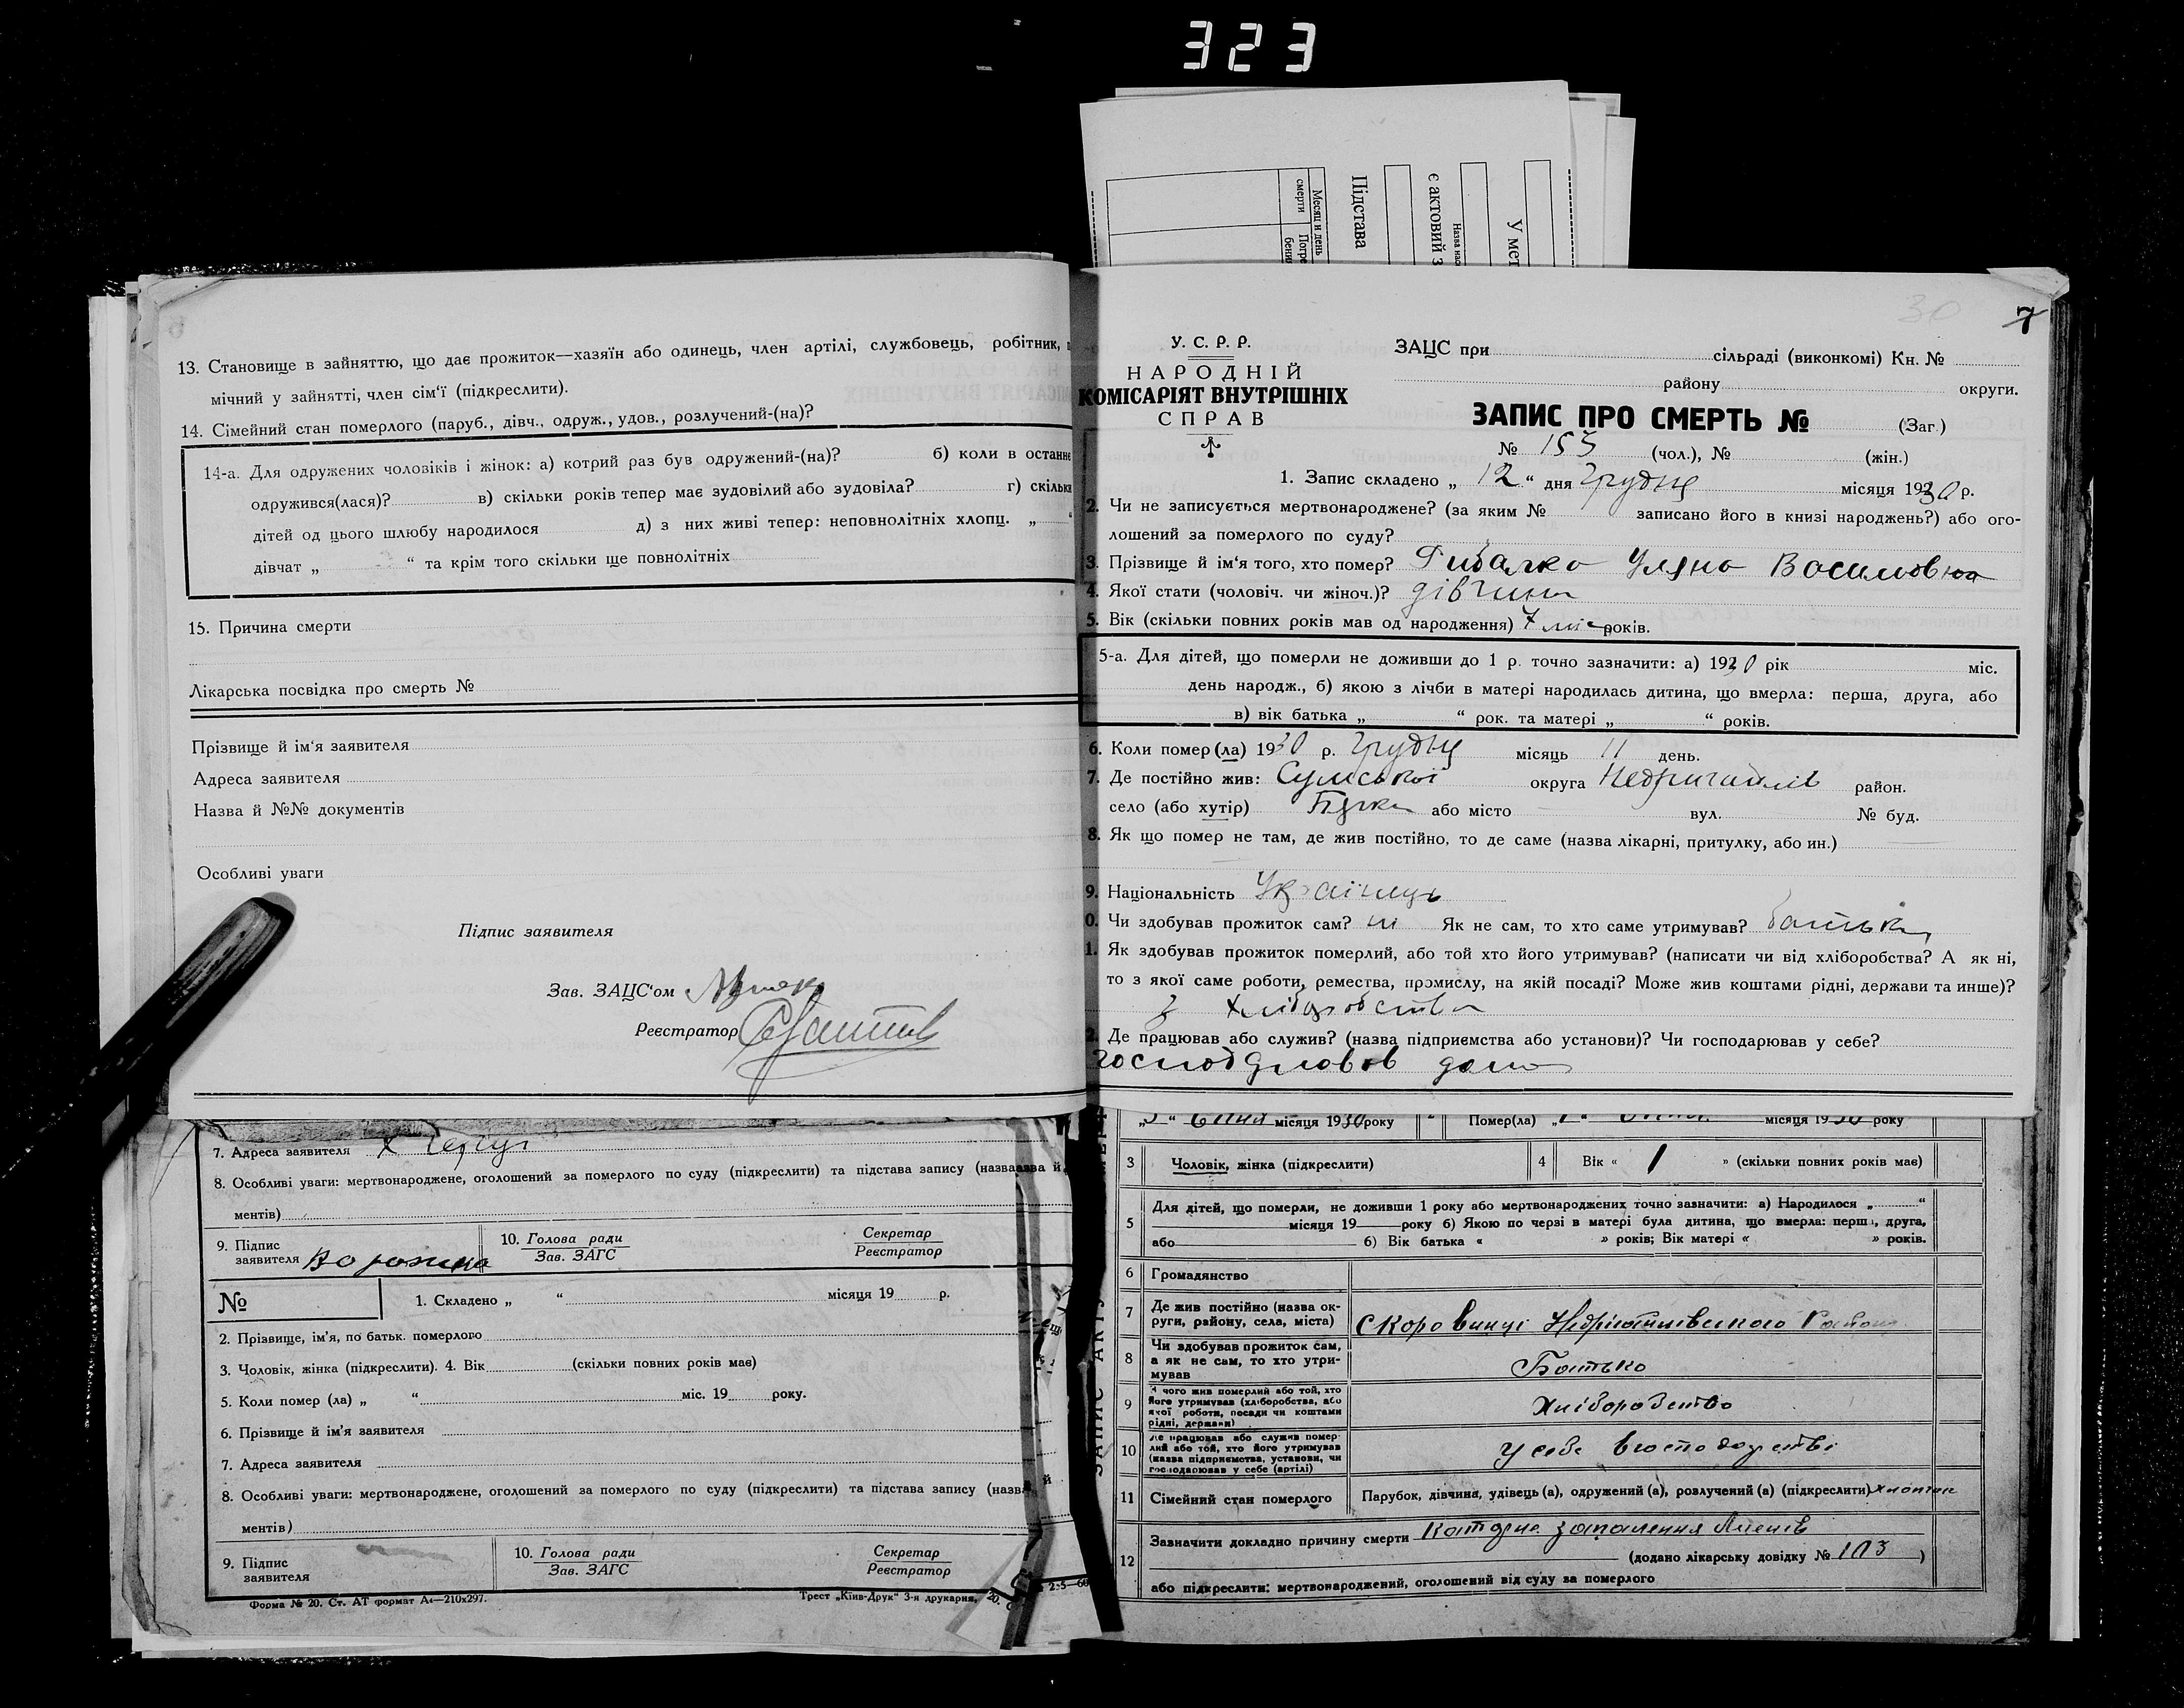 323
Месяц и день
смерти
Погре
бени
Підстава
є актовий з
Назва нас
У мет
13. Становище в зайняттю, що дає прожиток—хазяїн або одинець, член артілі, службовець, робітник,
мічний у зайнятті, член сім'ї (підкреслити).
14. Сімейний стан померлого (паруб., дівч., одруж., удов., розлучений-(на)?
14-а. Для одружених чоловіків і жінок: а) котрий раз був одружений-(на)? б) коли в останнє
одружився(лася)? в) скільки років тепер має зудовілий або зудовіла? г) скільки
дітей од цього шлюбу народилося д) з них живі тепер: неповнолітніх хлопц. „ “
дівчат „ “ та крім того скільки ще повнолітніх
15. Причина смерти
Лікарська посвідка про смерть №
Прізвище й ім'я заявителя
Адреса заявителя
Назва й №№ документів
Особливі уваги
Підпис заявителя
Зав. ЗАЦС'ом
Реєстратор
30 7
У. С. Р. Р.
НАРОДНІЙ
КОМІСАРІЯТ ВНУТРІШНІХ
СПРАВ
ЗАЦС при сільраді (виконкомі) Кн. №
району округи.
ЗАПИС ПРО СМЕРТЬ № (Заг.)
№ 155 (чол.), № (жін.)
1. Запис складено „ 12 “ дня Грудня місяця 1930 р.
2. Чи не записується мертвонароджене? (за яким № записано його в книзі народжень?) або ого-
лошений за померлого по суду?
3. Прізвище й ім'я того, хто помер? Рибалка Уляна Василовна
4. Якої стати (чоловіч. чи жіноч.)? дівчина
5. Вік (скільки повних років мав од народження) 7 міс років.
5-а. Для дітей, що померли не доживши до 1 р. точно зазначити: а) 1930 рік міс.
день народж., б) якою з лічби в матері народилась дитина, що вмерла: перша, друга, або
в) вік батька „ “ рок. та матері „ “ років.
6. Коли помер(ла) 1930 р. Грудня місяць 11 день.
7. Де постійно жив: Сумської округа Недригайлів район.
село (або хутір) або місто вул. № буд.
8. Як що помер не там, де жив постійно, то де саме (назва лікарні, притулку, або ин.)
9. Національність Українць
0. Чи здобував прожиток сам? ні Як не сам, то хто саме утримував? батько
1. Як здобував прожиток померлий, або той хто його утримував? (написати чи від хліборобства? А як ні,
то з якої саме роботи, ремества, промислу, на якій посаді? Може жив коштами рідні, держави та инше)?
з хліборобства
2. Де працював або служив? (назва підприємства або установи)? Чи господарював у себе?
господарював дома
7. Адреса заявителя
8. Особливі уваги: мертвонароджене, оголошений за померлого по суду (підкреслити) та підстава запису (назва й
ментів)
9. Підпис заявителя 10. Голова ради Зав. ЗАГС Секретар Реєстратор
№ 1. Складено „ “ місяця 19 р.
2. Прізвище, ім'я, по батьк. померлого
3. Чоловік, жінка (підкреслити). 4. Вік (скільки повних років має)
5. Коли помер (ла) „ “ міс. 19 року.
6. Прізвище й ім'я заявителя
7. Адреса заявителя
8. Особливі уваги: мертвонароджене, оголошений за померлого по суду (підкреслити) та підстава запису (назва й
ментів)
9. Підпис заявителя 10. Голова ради Зав. ЗАГС Секретар Реєстратор
Форма № 20. Ст. АТ формат А4—210х297. Трест „Київ-Друк" 3-я друкарня,
місяця 1930 року Помер(ла) місяця 1930 року
3 Чоловік, жінка (підкреслити) 4 Вік « 1 » (скільки повних років має)
5 Для дітей, що померли, не доживши 1 року або мертвонароджених точно зазначити: а) Народилося „ “
місяця 19 року б) Якою по черзі в матері була дитина, що вмерла: перша, друга,
або б) Вік батька « » років; Вік матері « » років.
6 Громадянство
7 Де жив постійно (назва ок-
руги, району, села, міста)
8 Чи здобував прожиток сам,
а як не сам, то хто утри-
мував Батько
9 З чого жив померлий або той, хто
його утримував (хліборобства, або
якої роботи, посади чи коштами
рідні, держави) Хліборобство
10 Де працював або служив помер-
лий або той, хто його утримував
(назва підприємства, установи, чи
господарював у себе (артілі) у себе в господарстві
11 Сімейний стан померлого Парубок, дівчина, удівець(а), одружений(а), розлучений(а) (підкреслити) хлопчик
12 Зазначити докладно причину смерти Катарне запалення легенів
(додано лікарську довідку № 103 )
або підкреслити: мертвонароджений, оголошений від суду за померлого